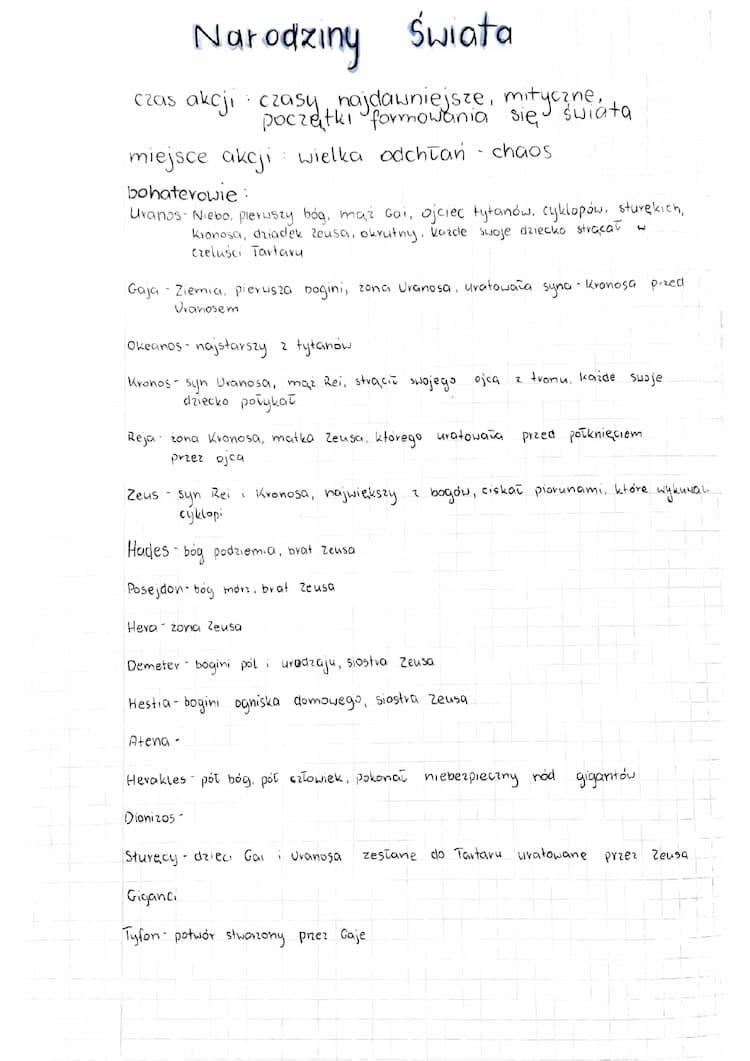 Narodziny Świata
czas akcji : czasy najdawniejsze, mityczne,
początki formowania się świata
miejsce akcji : wielka odchłań - chaos
bohaterowie :
Uranos - Niebo, pierwszy bóg, mąż Gai, ojciec tytanów, cyklopów, sturękich,
Kronosa, dziadek Zeusa, okrutny, każde swoje dziecko strącał w
czeluści Tartaru
Gaja - Ziemia, pierwsza bogini, żona Uranosa, uratowała syna - Kronosa przed
Uranosem
Okeanos - najstarszy z tytanów
Kronos - syn Uranosa, mąż Rei, strącił swojego ojca z tronu, każde swoje
dziecko połykał
Reja - żona Kronosa, matka Zeusa, którego uratowała przed połknięciem
przez ojca
Zeus - syn Rei i Kronosa, największy z bogów, ciskał piorunami, które wykuwali
cyklopi
Hades - bóg podziemia, brat Zeusa
Posejdon - bóg mórz, brat Zeusa
Hera - żona Zeusa
Demeter - bogini pól i urodzaju, siostra Zeusa
Hestia - bogini ogniska domowego, siostra Zeusa
Atena -
Herakles - pół bóg, pół człowiek, pokonał niebezpieczny ród gigantów
Dionizos -
Sturęcy - dzieci Gai i Uranosa zesłane do Tartaru uratowane przez Zeusa
Giganci
Tyfon - potwór stworzony przez Gaje